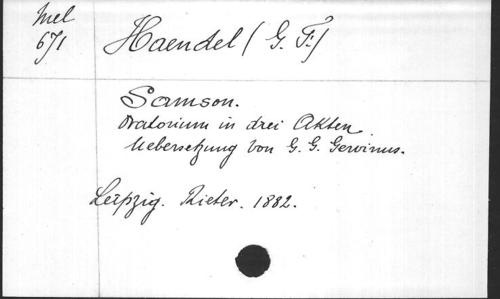 Mel
671
Haendel (G. F.)
Samson.
Oratorium in drei Akten.
Uebersetzung von G. G. Gervinus.
Leipzig. Rieter. 1882.